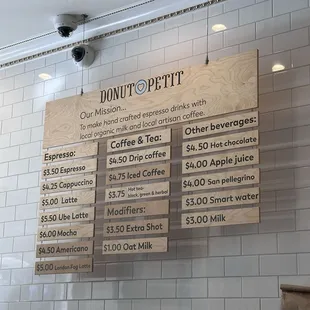 DONUT PETIT
Our Mission...
To make hand crafted espresso drinks with
local organic milk and local artisan coffee.
Espresso:
$3.50 Espresso
$4.25 Cappuccino
$5.00 Latte
$5.50 Ube Latte
$6.00 Mocha
$4.50 Americano
$5.00 London Fog Latte
Coffee & Tea:
$4.50 Drip coffee
$4.75 Iced Coffee
$3.75 Hot tea:
black, green & herbal
Modifiers:
$3.50 Extra Shot
$1.00 Oat Milk
Other Beverages:
$4.50 Hot chocolate
$4.00 Apple juice
$4.00 San pellegrino
$3.00 Smart water
$3.00 Milk